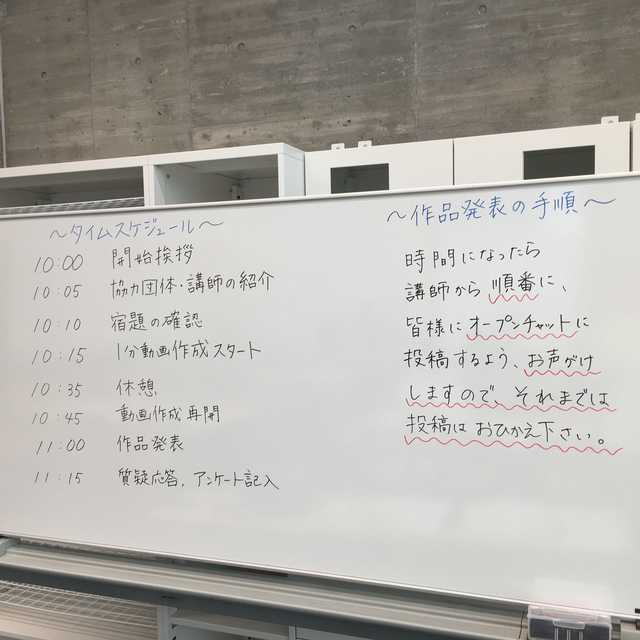 ～タイムスケジュール～
10:00 開始挨拶
10:05 協力団体・講師の紹介
10:10 宿題の確認
10:15 1分動画作成スタート
10:35 休憩
10:45 動画作成再開
11:00 作品発表
11:15 質疑応答、アンケート記入
～作品発表の手順～
時間になったら
講師から順番に、
皆様にオープンチャットに
投稿するよう、お声がけ
しますので、それまでは
投稿はおひかえ下さい。